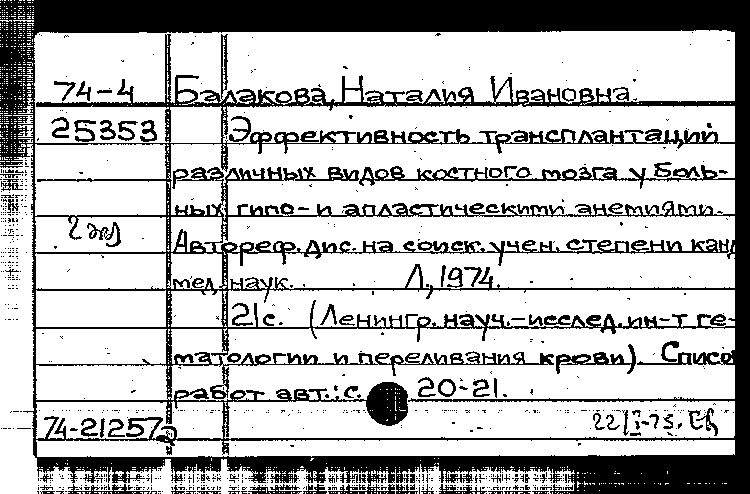 74-4 Балакова, Наталия Ивановна.
25353 Эффективность трансплантаций
различных видов костного мозга у боль-
ных гипо- и апластическими анемиями.
2 экз Автореф. дис. на соиск. учен. степени канд
мед. наук. Л., 1974.
21с. (Ленингр. науч.-исслед. ин-т ге-
матологии и переливания крови). Списо
работ авт.: с. 20-21.
74-21257 22/I-75.